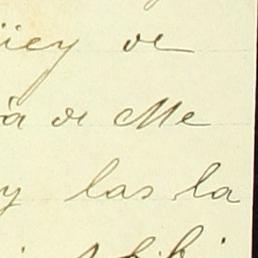 üey de
ia de Me
y las la